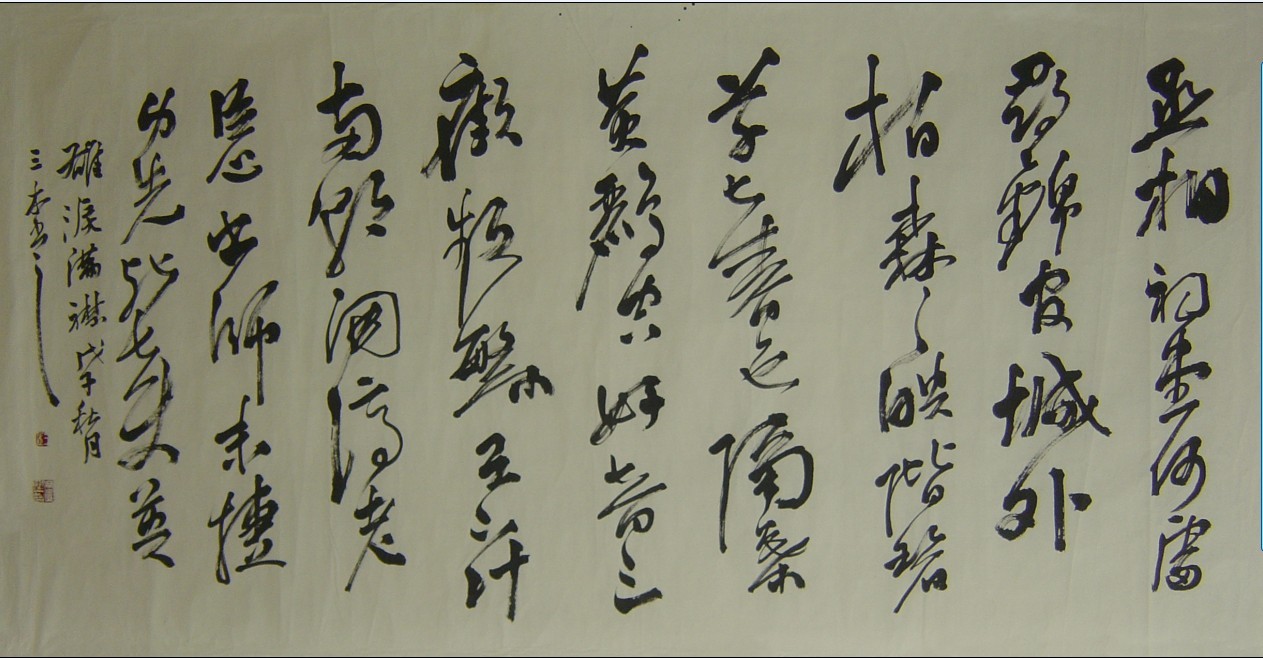 丞相祠堂何處
尋錦官城外
柏森々映階碧
草自春色隔葉
黃鸝空好音三
顧頻繁天下計
兩朝開濟老
臣心出師未捷
身先死長使英
雄淚滿襟戊子秋月